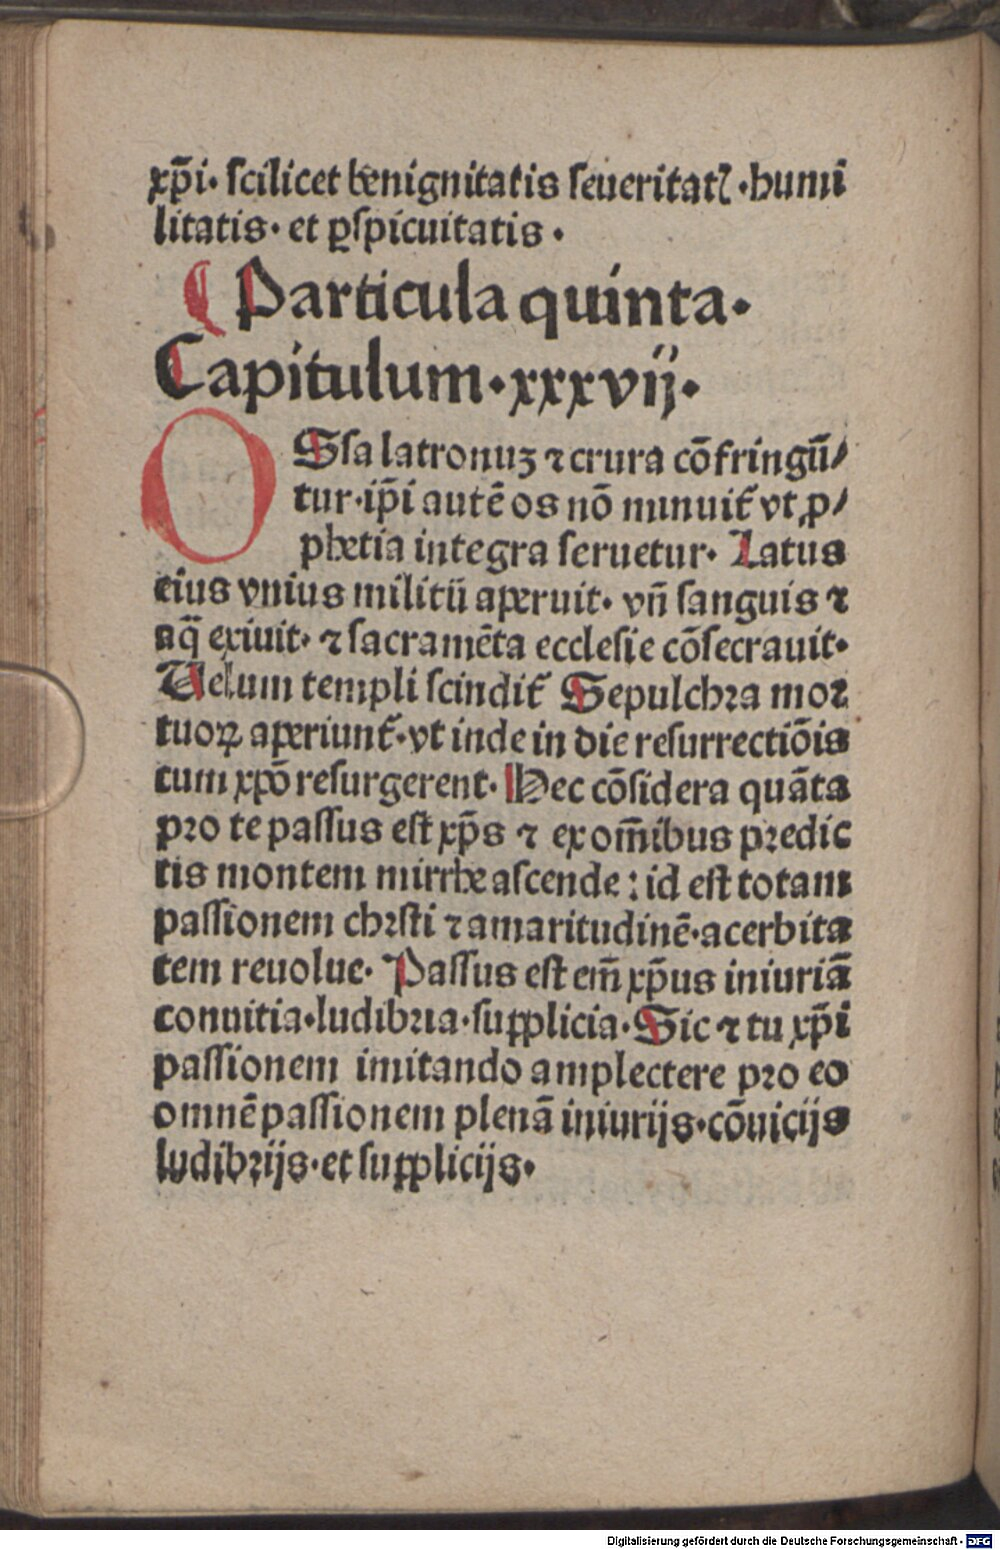 xp̄i. scilicet benignitatis seueritatꝭ .humi
litatis. et ꝑspicuitatis.
¶ Particula quinta.
Capitulum.xxxvij.
OSsa latronuꝫ ⁊ crura cōfringū/
tur.ip̄i autē os nō minuit᷑ vt ꝓ/
phetia integra seruetur. Latus
eius vnius militū aperuit. vn̄ sanguis ⁊
aq̄ exiuit. ⁊ sacramēta ecclesie cōsecrauit.
Uelum templi scindit᷑ Sepulchra mor
tuoꝝ aperiunt᷑.vt inde in die resurrectiōis
cum xp̄o resurgerent. Hec cōsidera quāta
pro te passus est xp̄s ⁊ ex om̄ibus predic
tis montem mirrhe ascende: id est totam
passionem chrsti ⁊ amaritudinē.acerbita
tem reuolue. Passus est em̄ xp̄us iniuriā
conuitia.ludibria.supplicia. Sic ⁊ tu xp̄i
passionem imitando amplectere pro eo
omnē passionem plenā iniurijs.cōuicijs
ludibrijs.et supplicijs.
Digitalisierung gefördert durch die Deutsche Forschungsgemeinschaft - DFG